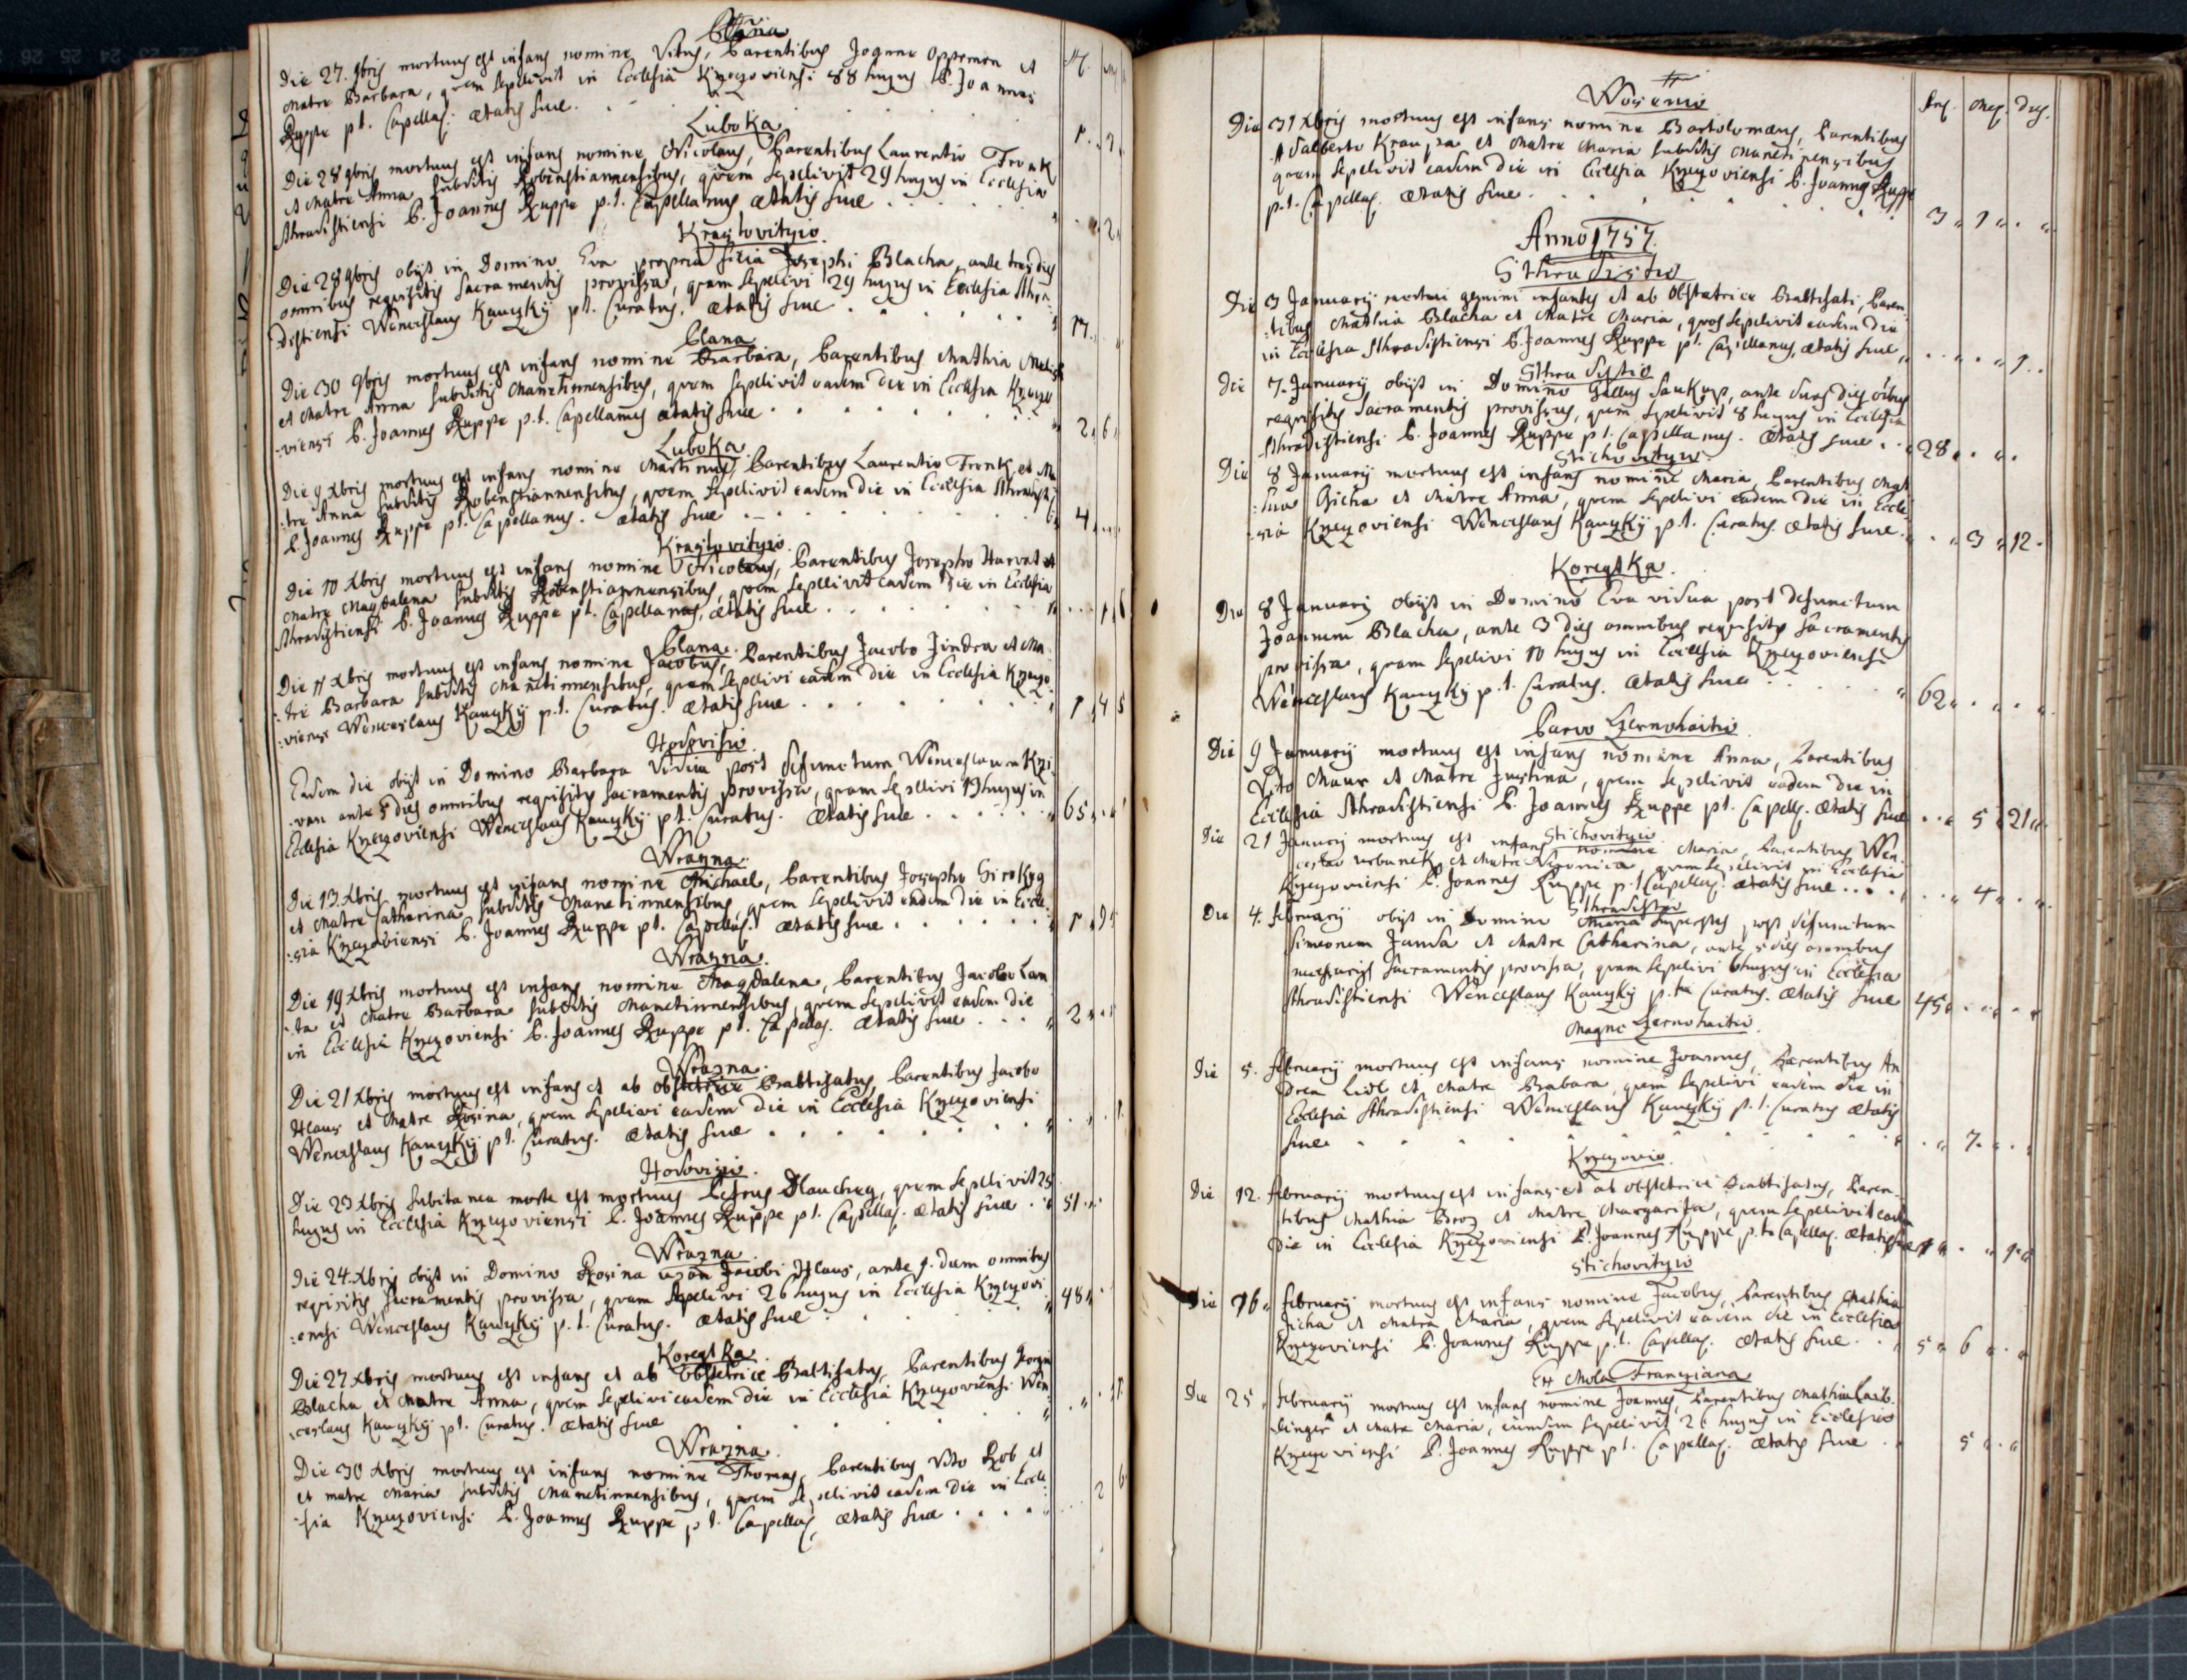 Clana
Die 27. 9bris mortuus est infans nomine Vitus, Parentibus Joanne Oppeman et
Matre Barbara, quem sepelivit in Ecclesia Knezoviensi 28 hujus P. Joannes
Ruppe p.t. Capellag. ætatis suæ
Luboka
Die 28 9bris mortuus est infans nomine Nicolaus, Parentibus Laurentio Fronk
et Matre Anna subditis Robenstiannensibus, quem sepelivit 29 hujus in Ecclesia
Sthradistiensi P. Joannes Ruppe p.t. Capellanus, ætatis suæ
Kraslovitzio
Die 28 9bris obijt in Domino Eva propria filia Josephi Blacha, ante tres dies
omnibus requisitis Sacramentis provissa, quam sepelivi 29 hujus in Ecclesia Sthra-
distiensi Wenceslaus Kautzky p.t. Curatus. ætatis suæ 17
Clana
Die 30 9bris mortuus est infans nomine Barbara, Parentibus Mathia
et Matre Anna subditis Manetinnensibus, quem sepelivit eadem die in Ecclesia Knezo
viensi P. Joannes Ruppe p.t. Capellanus ætatis suæ 2 6
Luboka
Die 9 Xbris mortuus est infans nomine Martinus, Parentibus Laurentio Fronk, et Ma
tre Anna subditis Robenstiannensibus, quem sepelivit eadem die in Ecclesia Sthradisti
P. Joannes Ruppe p.t. Capellanus. ætatis suæ 4
Kraslovitzio
Die 10 Xbris mortuus est infans nomine Nicolaus, Parentibus Josepho Harvat et
Matre Magdalena subditis Robenstiannensibus, quem sepelivit eadem die in Ecclesia
Sthradistiensi P. Joannes Ruppe p.t. Capellanus, ætatis suæ
Clana
Die 11 Xbris mortuus est infans nomine Jacobus, Parentibus Jacobo Jindra et Ma
tre Barbara subditis Manetinnensibus, quem sepelivi eadem die in Ecclesia Knezo
viensi Wenceslaus Kautzky p.t. Curatus. ætatis suæ 1 4 5
Hodovisio
Eadem die obijt in Domino Barbara Vidua post defunctum Wenceslaum Kri
van ante 5 dies omnibus requisitis sacramentis provissa, quam sepelivi 13 hujus in
Ecclesia Knezoviensi Wenceslaus Kautzky p.t. Curatus. ætatis suæ 65
Wrazna
Die 13. Xbris mortuus est infans nomine Michael, Parentibus Josepho Siroky
et Matre Catharina subditis Manetinnensibus, quem sepelivit eadem die in Eccle-
sia Knezoviensi P. Joannes Ruppe p.t. Capellag. ætatis suæ 1 9
Wrazna
Die 19 Xbris mortuus est infans nomine Magdalena, Parentibus Jacobo Lan
da et Matre Barbara subditis Manetinnensibus, quem sepelivit eadem die
in Ecclesia Knezoviensi P. Joannes Ruppe p.t. Capellag. ætatis suæ 2
Wrazna
Die 21 Xbris mortuus est infans et ab obstetrice Babtisatus, Parentibus Jacobo
Hlaus et Matre Rosina, quem sepelivi eadem die in Ecclesia Knezoviensi
Wenceslaus Kautzky p.t. Curatus. ætatis suæ 1
Hodovizio
Die 23 Xbris subitanea morte est mortuus Petrus Dlauchy, quem sepelivit 25
hujus in Ecclesia Knezoviensi P. Joannes Ruppe p.t. Capellag. ætatis suæ 51
Wrazna
Die 24. Xbris obijt in Domino Rosina uxor Jacobi Hlaus, ante 1. diem omnibus
requisitis sacramentis provissa, quam sepelivi 26 hujus in Ecclesia Knezovi
ensi Wenceslaus Kautzky p.t. Curatus. ætatis suæ 48
Koregtka
Die 27 Xbris mortuus est infans et ab obstetrice Babtisatus, Parentibus Georgio
Blacha et Matre Anna, quem sepelivi eadem die in Ecclesia Knezoviensi Wen
ceslaus Kautzky p.t. Curatus. ætatis suæ
Wrazna
Die 30 Xbris mortuus est infans nomine Thomas, Parentibus Vito Rob et
et matre Maria subditis Manetinnensibus, quem sepelivit eadem die in Eccle
sia Knezoviensi P. Joannes Ruppe p.t. Capellag. ætatis suæ 2 6
Wosenio
Die 31 Xbris mortuus est infans nomine Bartolomæus, Parentibus
Adalberto Kraupa et Matre Maria subditis Manetinensibus
quem sepelivit eadem die in Ecclesia Knezoviensi P. Joannes Ruppe
p.t. Capellag. ætatis suæ 3 1
Anno 1757.
Sthradistio
Die 3 Januarij mortui gemini infantes et ab Obstetrice Babtisati, Paren
tibus Mathia Blacha et Matre Maria, quos sepelivit eadem die
in Ecclesia Sthradistiensi P. Joannes Ruppe p.t. Capellanus, ætatis suæ 1
Sthradistio
Die 7. Januarij obijt in Domino Gallus Saukup, ante duos dies oibus
requisitis Sacramentis provissus, quem sepelivit 8 hujus in Ecclesia
Sthradistiensi P. Joannes Ruppe p.t. Capellanus. ætatis suæ 28
Stichovitzio
Die 8 Januarij mortuus est infans nomine Maria, Parentibus Mat
Gicha et Matre Anna, quem sepelivi eadem die in Eccle
sia Knezoviensi Wenceslaus Kautzky p.t. Curatus. ætatis suæ 3 12
Koregtka
Die 8 Januarij obijt in Domino Eva vidua post defunctum
Joannem Blacha, ante 3 dies omnibus requisitis sacramentis
provissa, quam sepelivi 10 hujus in Ecclesia Knezoviensi
Wenceslaus Kautzky p.t. Curatus. ætatis suæ 62
Parvo Zernohaitio
Die 9 Januarij mortuus est infans nomine Anna, Parentibus
Vito Maur et Matre Justina, quem sepelivit eadem die in
Ecclesia Sthradistiensi P. Joannes Ruppe p.t. Capellg. ætatis suæ 5 21
Stichovitzio
Die 21 Januarij mortuus est infans nomine Maria, Parentibus Wen
ceslao urbanek, et Matre Veronica quem sepelivit in Ecclesia
Knezoviensi P. Joannes Ruppe p.t. Capellag. ætatis suæ 4
Sthradistio
Die 4. februarij obijt in Domino Maria superstes post defunctum
Simeonem Janda et Matre Catharina, ante 5 dies omnibus
necessarijs Sacramentis provissa, quam sepelivi 6 hujus in Ecclesia
Sthradistiensi Wenceslaus Kautzky p.t. Curatus. ætatis suæ 45
Magno Zernohaitio
Die 5. februarij mortuus est infans nomine Joannes, Parentibus An
drea Lidl et Matre Barbara, quem sepelivi eadem die in
Ecclesia Sthradistiensi Wenceslaus Kautzky p.t. Curatus ætatis
suæ 7
Knezovio
Die 12. februarij mortuus est infans et ab obstetrice Babtisatus, Paren
tibus Mathia Broz et Matre Margarita, quem sepelivit eadem
die in Ecclesia Knezoviensi P. Joannes Ruppe p.t. Capellag. ætatis suæ
Stichovitzio
Die 16 februarij mortuus est infans nomine Jacobus, Parentibus Mathia
Jicha et Matre Maria, quem sepelivit eadem die in Ecclesia
Knezoviensi P. Joannes Ruppe p.t. Capellag. ætatis suæ 5 6
Ex Mola Franziana
Die 25 februarij mortuus est infans nomine Joannes, Parentibus Mathia Laib
linger et Matre Maria, eundem sepelivit 26 hujus in Ecclesia
Knezoviensi P. Joannes Ruppe p.t. Capellag. ætatis suæ 5